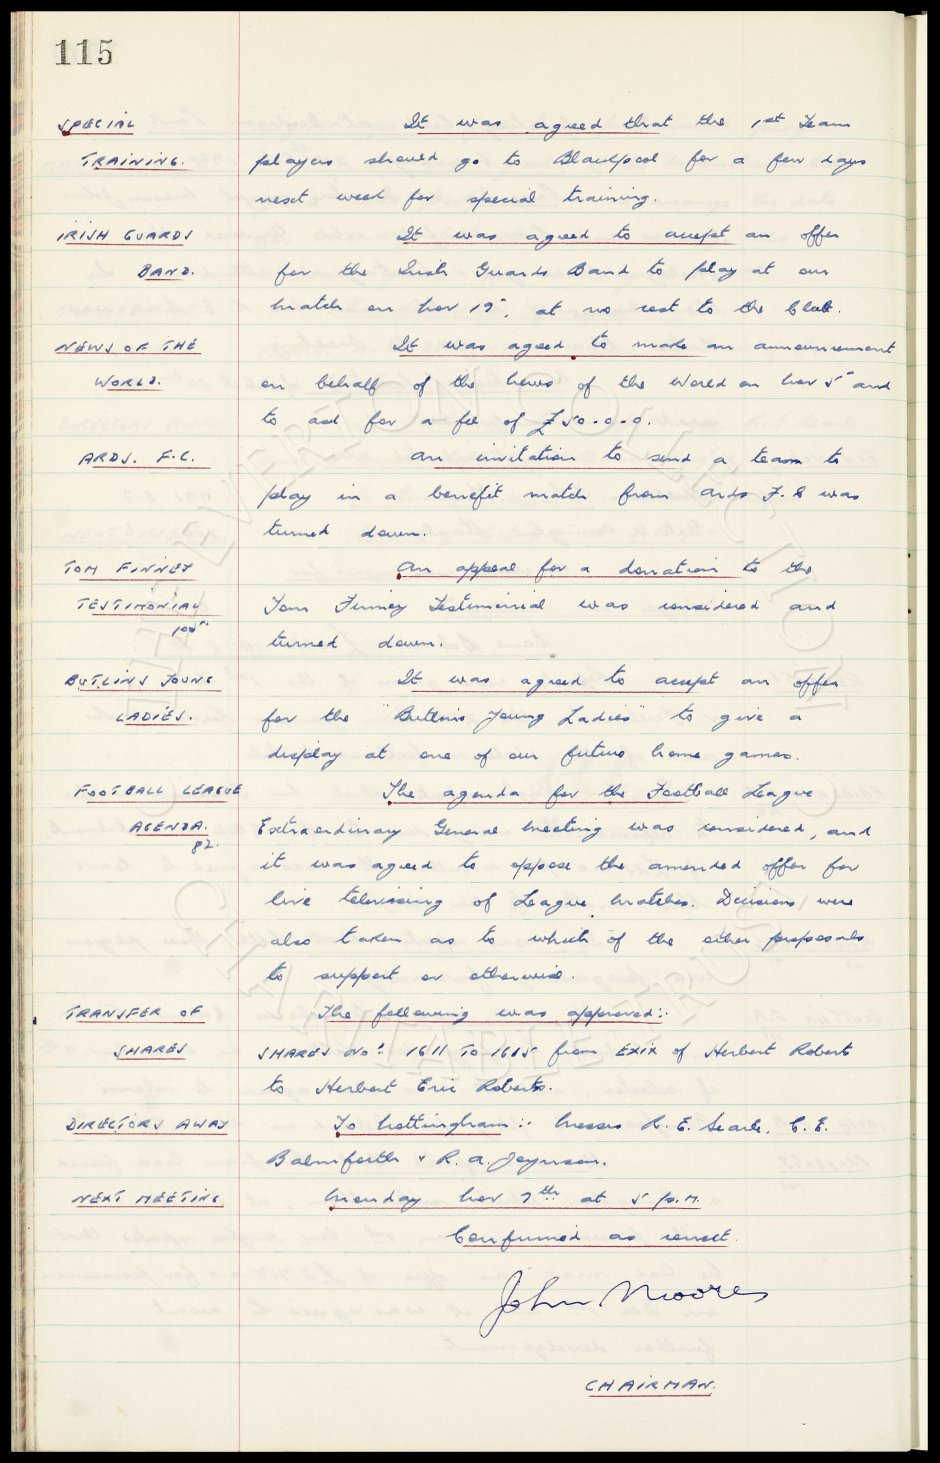 115
SPECIAL It was agreed that the 1st Team
TRAINING. players should go to Blackpool for a few days
next week for special training.
IRISH GUARDS It was agreed to accept an offer
BAND. for the Irish Guards Band to play at our
match on Nov 19", at no cost to the Club.
NEWS OF THE It was agreed to make an announcement
WORLD. on behalf of the News of the World on Nov 5" and
to ask for a fee of £50.0.0.
ARDS. F.C. An invitation to send a team to
play in a benefit match from Ards F.C was
turned down.
TOM FINNEY An appeal for a donation to the
TESTIMONIAL Tom Finney Testimonial was considered and
105" turned down.
BUTLINS YOUNG It was agreed to accept an offer
LADIES. for the "Butlins Young Ladies" to give a
display at one of our future home games.
FOOTBALL LEAGUE The agenda for the Football League
AGENDA. Extraordinary General Meeting was considered, and
82. it was agreed to oppose the amended offer for
live televising of League Matches. Decisions were
also taken as to which of the other proposals
to support or otherwise.
TRANSFER OF The following was approved:.
SHARES SHARES NOS. 1611 TO 1615 from EXIX of Herbert Roberts
to Herbert Eric Roberts.
DIRECTORS AWAY To Nottingham:. Messrs R. E. Searle, C. E.
Balmforth & R. A. Joynson.
NEXT MEETING Monday Nov 7th at 5 p.m.
Confirmed as correct.
John Moores
CHAIRMAN.
THE EVERTON COLLECTION
CHARITABLE TRUST